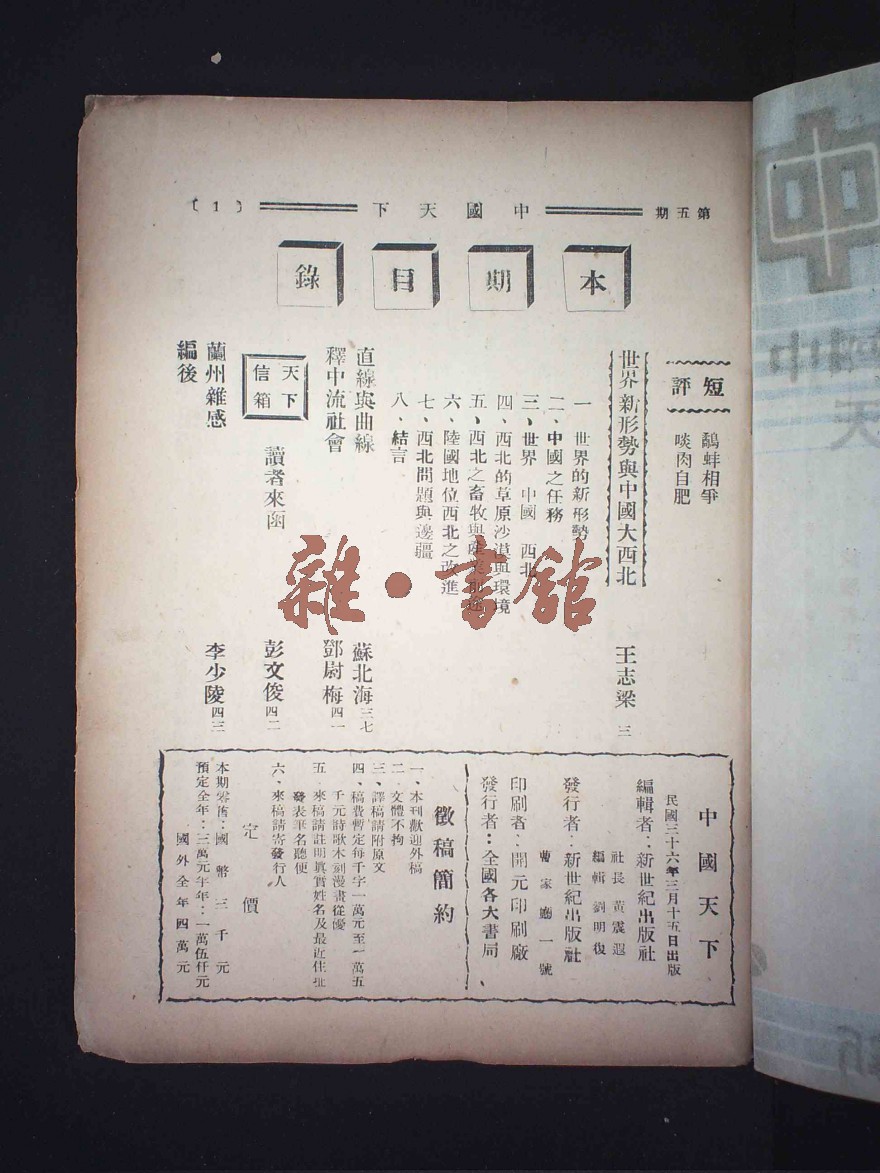 第五期
中國天下
〔1〕
本期目錄
短評
鷸蚌相爭
啖肉自肥
世界新形勢與中國大西北
王志梁 三
一 世界的新形勢
二、中國之任務
三、世界 中國 西北
四、西北的草原沙漠與環境
五、西北之畜牧與
六、陸國地位西北之改進
七、西北問題與邊疆
八、結言
直線與曲線
蘇北海 三七
釋中流社會
鄧尉梅 四一
天下信箱
讀者來函
彭文俊 四二
蘭州雜感
李少陵 四三
編後
中國天下
民國三十六年三月十五日出版
編輯者：新世紀出版社
社長 黃震遐
編輯 劉明復
發行者：新世紀出版社
曹家廳一號
印刷者：開元印刷廠
發行者：全國各大書局
徵稿簡約
一、本刊歡迎外稿
二 文體不拘
三、譯稿請附原文
四、稿費暫定每千字一萬元至一萬五
千元詩歌木刻漫畫從優
五 來稿請註明真實姓名及最近住址
發表筆名聽便
六、來稿請寄發行人
定價
本期零售：國幣三千元
預定全年：三萬元半年：一萬伍仟元
國外全年四萬元
雜·書館